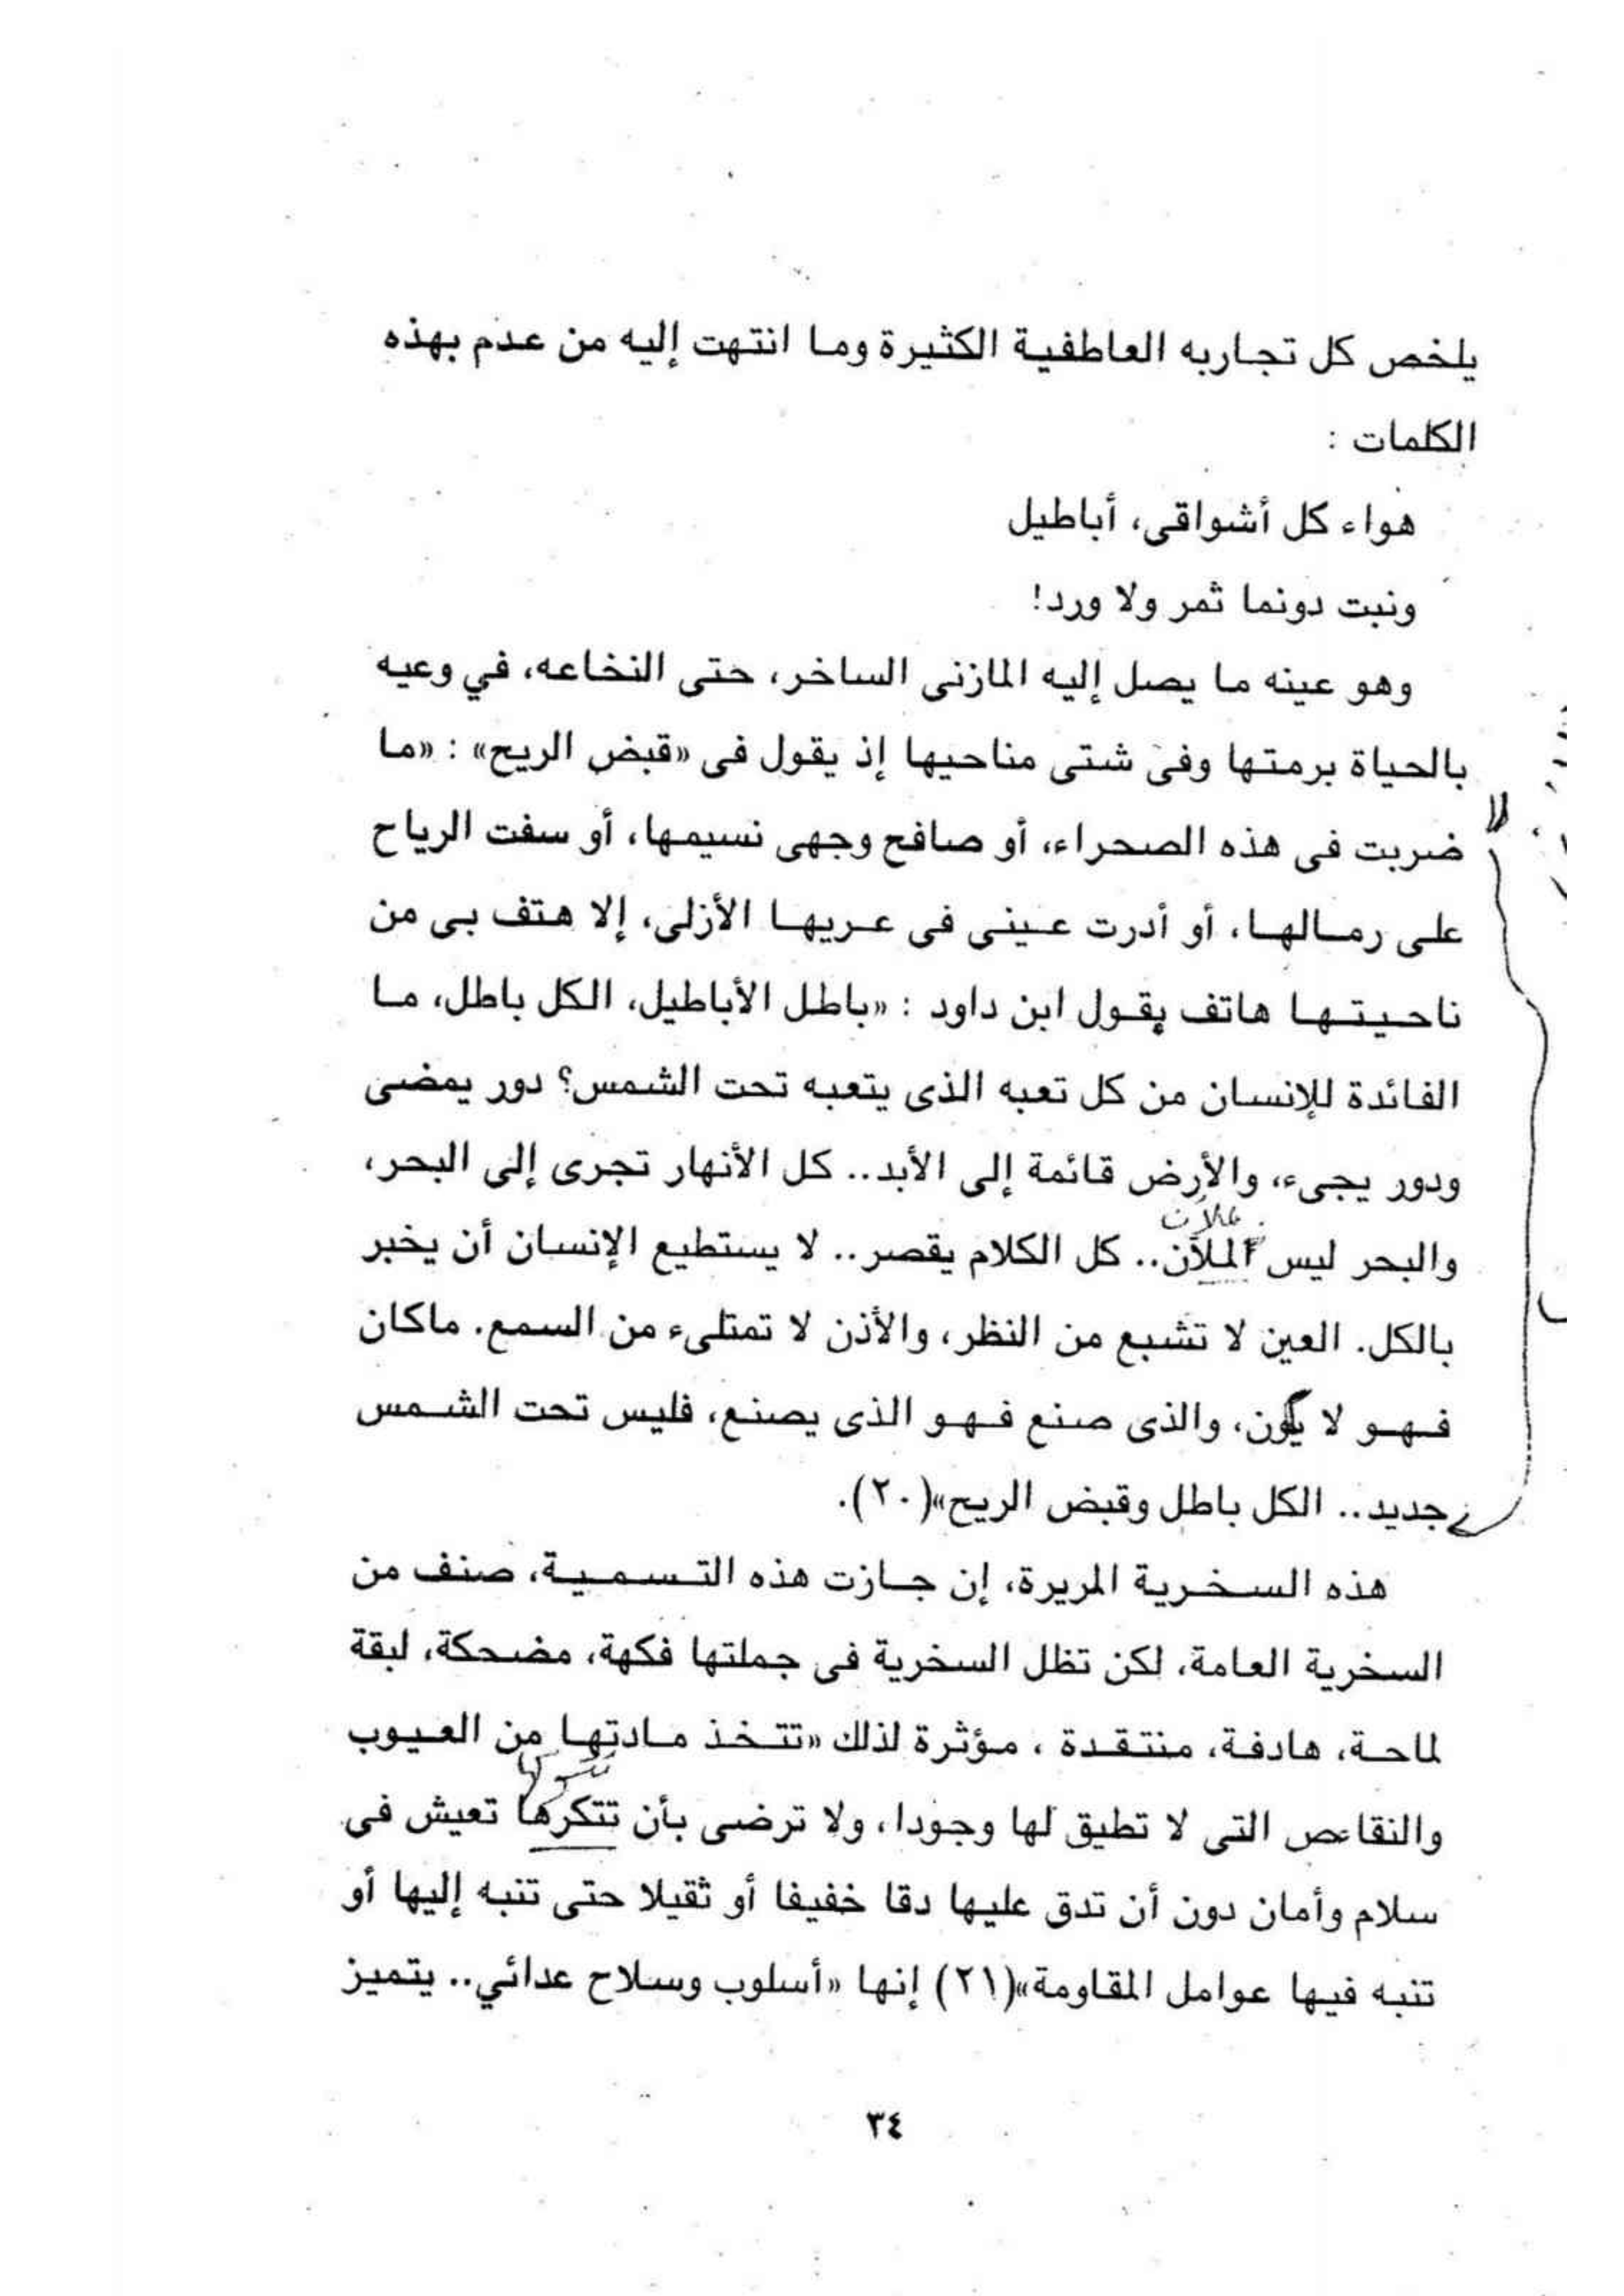 يلخص كل تجاربه العاطفية الكثيرة وما انتهت إليه من عدم بهذه
الكلمات :
هواء كل أشواقى، أباطيل
ونبت دونما ثمر ولا ورد!
وهو عينه ما يصل إليه المازنى الساخر، حتى النخاعه، في وعيه
بالحياة برمتها وفى شتى مناحيها إذ يقول فى «قبض الريح» : «ما
ضربت فى هذه الصحراء، أو صافح وجهى نسيمها، أو سفت الرياح
على رمالها، أو أدرت عينى فى عريها الأزلى، إلا هتف بى من
ناحيتها هاتف يقول ابن داود : «باطل الأباطيل، الكل باطل، ما
الفائدة للإنسان من كل تعبه الذى يتعبه تحت الشمس؟ دور يمضى
ودور يجىء، والأرض قائمة إلى الأبد.. كل الأنهار تجرى إلى البحر،
والبحر ليس الملآن.. كل الكلام يقصر.. لا يستطيع الإنسان أن يخبر
بالكل. العين لا تشبع من النظر، والأذن لا تمتلىء من السمع. ماكان
فهو لا يكون، والذى صنع فهو الذى يصنع، فليس تحت الشمس
جديد.. الكل باطل وقبض الريح»(٢٠).
هذه السخرية المريرة، إن جازت هذه التسمية، صنف من
السخرية العامة، لكن تظل السخرية فى جملتها فكهة، مضحكة، لبقة
لماحة، هادفة، منتقدة ، مؤثرة لذلك «تتخذ مادتها من العيوب
والنقاءص التى لا تطيق لها وجودا، ولا ترضى بأن تتكرها تعيش فى
سلام وأمان دون أن تدق عليها دقا خفيفا أو ثقيلا حتى تنبه إليها أو
تنبه فيها عوامل المقاومة»(٢١) إنها «أسلوب وسلاح عدائي.. يتميز
٣٤